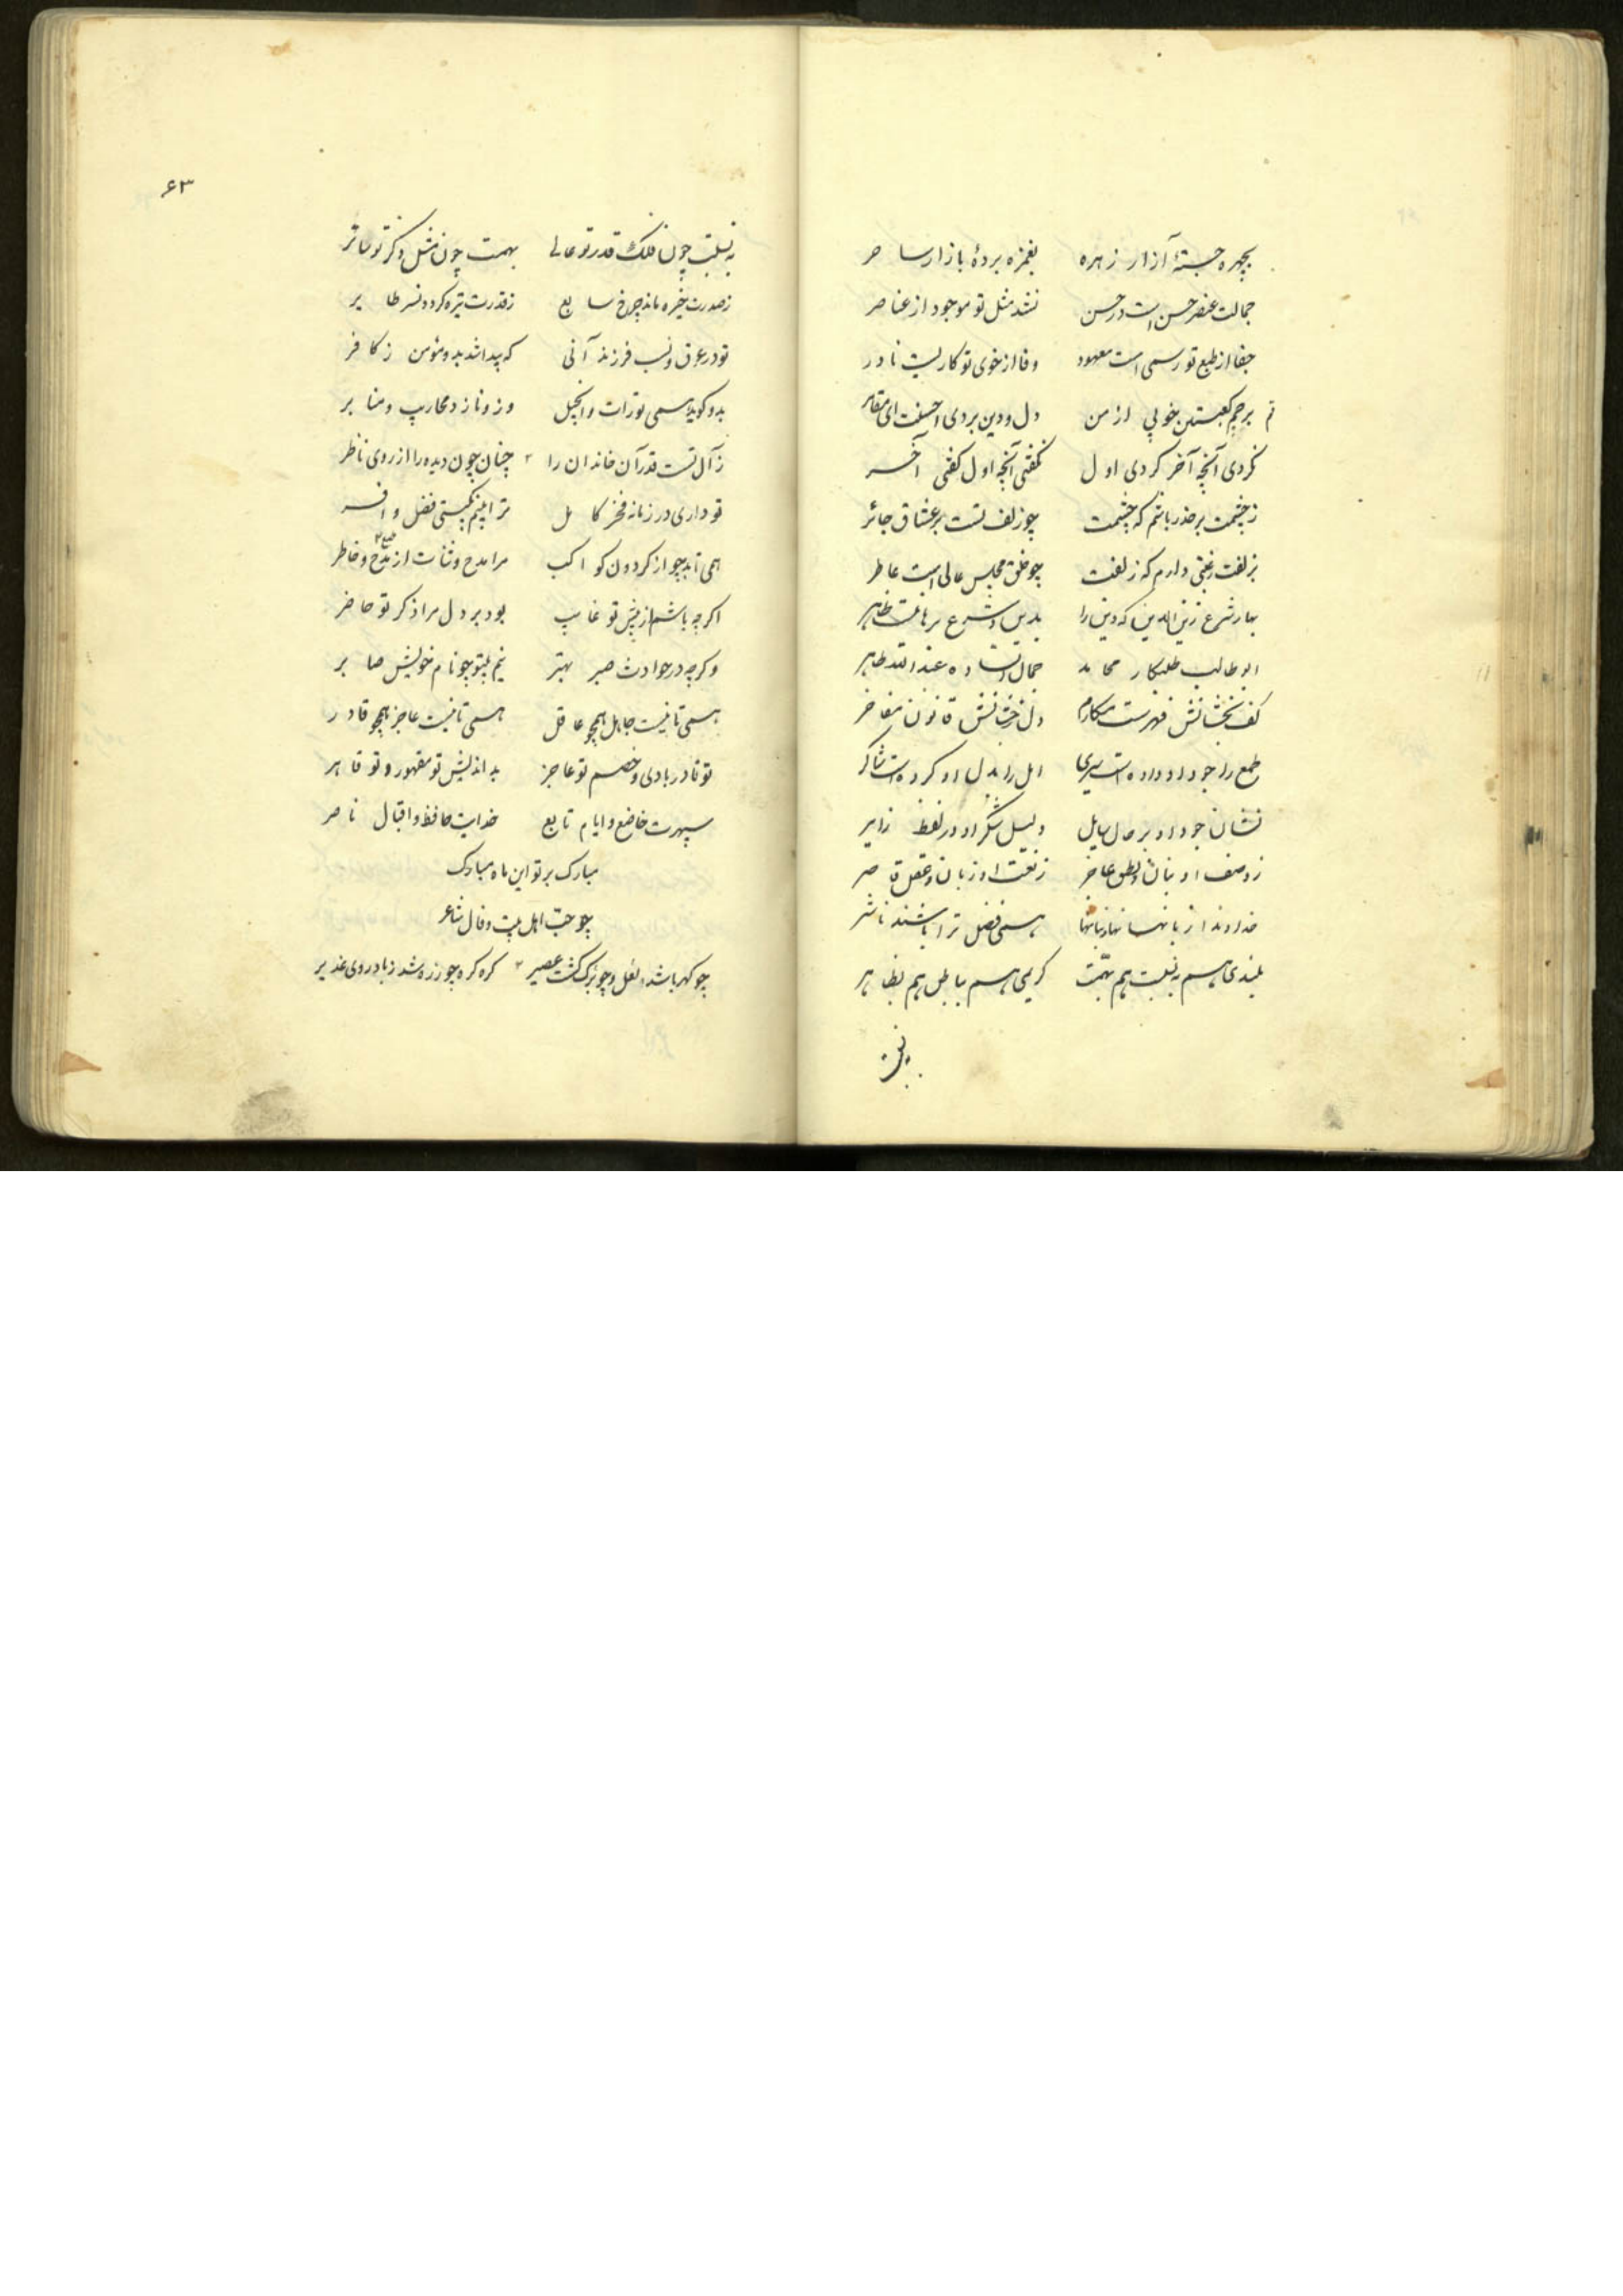 بچهره جستهٔ آزار زهره بغمزه بردهٔ بازار ساحر
جمالت عنصر حسن است در حسن نشد مثل تو موجود از عناصر
جفا از طبع تو رسمی است معهود وفا از خوی تو کاریست نادر
دل و دین بردی احسنت ای مقامر
نکردی آنچه آخر کردی اول نگفتی آنچه اول گفتی آخر
ز چشمت پر حذر باشم که چشمت چو زلف تست بر عشاق جائر
بزلفت رغبتی دارم که زلفت چو خلق مجلس عالی است عاطر
بهار شرع زین الدین که دین را
ابو طالب طلبکار محامد جمال عبدالله طاهر
کف بخشانش فهرست مکارم دل رخشانش قانون مفاخر
طمع را جود او داده است سیری امل را بذل او کرده است شاکر
نشان جود او بر حال سایل دلیل شکر او در لفظ زایر
ز وصف او بنان و نطق عاجز ز نعت او زبان و عقل قاصر
خداوندا همی فضل ترا باشند ناشر
بلندی هم به نسبت هم بهمت کریمی هم بباطن هم بظاهر
به نسبت
۶۳
به نسبت چون فلک قدر تو عالی بهمت چون مثل ذکر تو سائر
ز صدرت خیره ماند چرخ سابع ز قدرت تیره گردد نسر طایر
تو در عرق و نسب فرزند آنی که پیدا شد بدو مؤمن ز کافر
بدو گوید همی تورات و انجیل وزو نازد محاریب و منابر
ز آل تست قدر آن خاندان را چنان چون دیده را از روی ناظر
تو داری در زمانه فخر کامل ترا بینم بگیتی فضل وافر
همی تابد چو از گردون کواکب مرا مدح و ثنات از مدح و خاطر
طبع
اگر چه باشم از پیش تو غایب بود بر دل مرا ذکر تو حاضر
وگرچه در حوادث صبر بهتر نیم بیتو چو نام خویش صابر
همی تا نیست جاهل همچو عاقل همی تا نیست عاجز همچو قادر
تو قادر بادی و خصم تو عاجز بداندیش تو مقهور و تو قاهر
سپهرت خاضع و ایام تابع خدایت حافظ و اقبال ناصر
مبارک بر تو این ماه مبارک
چو حبّ اهل بیت و فال شاعر
چو کهربا شد لعل و چو برگ گشت عصیر گره گره چو زره شد ز باد روی غدیر